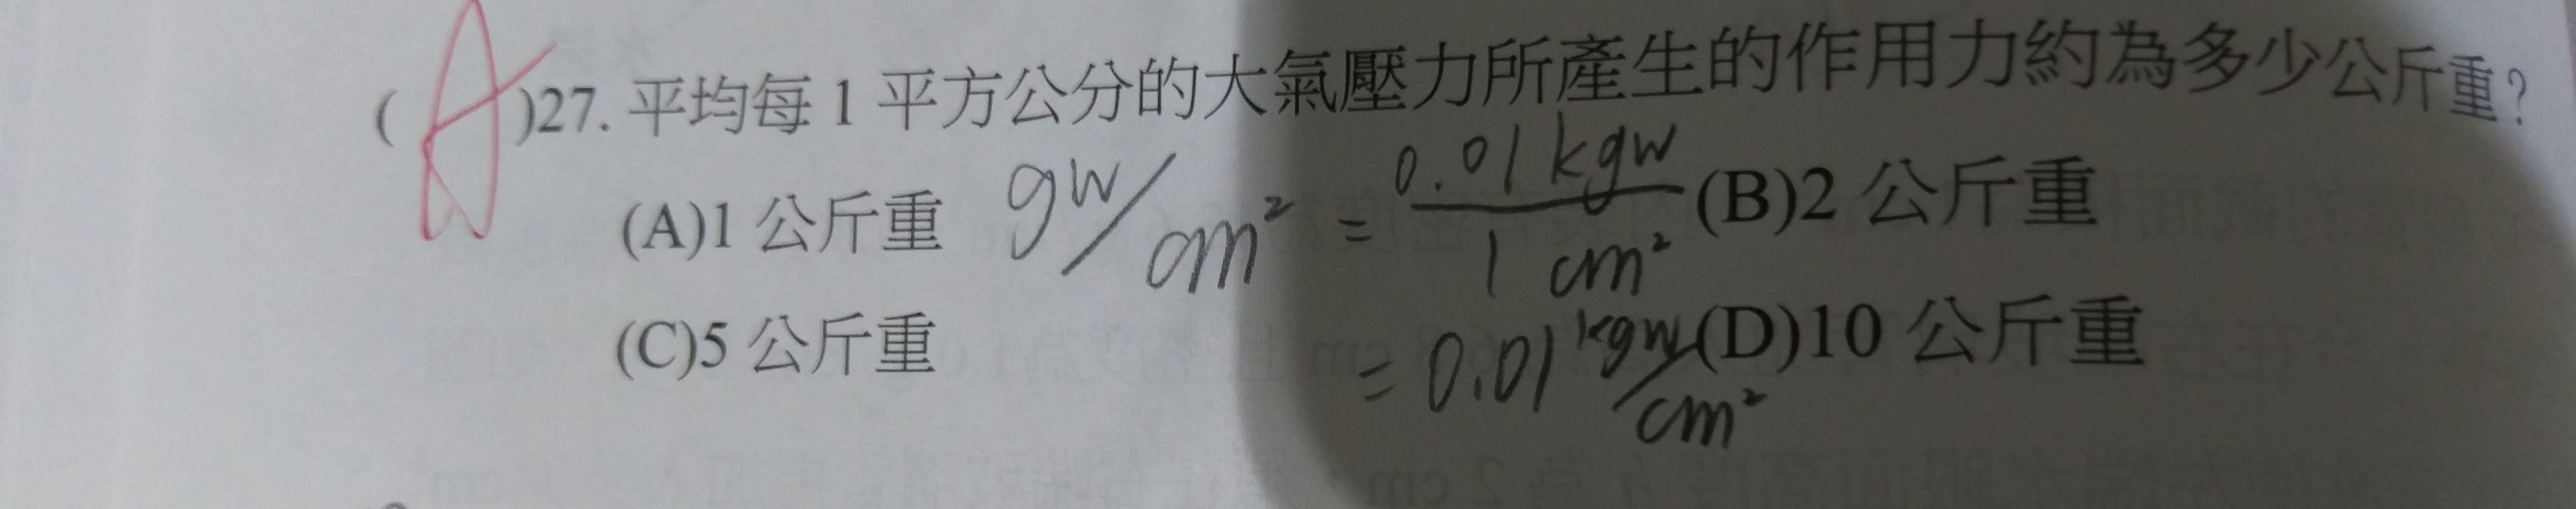 (A)27. 平均每 1 平方公分的大氣壓力所產生的作用力約為多少公斤重?
(A)1 公斤重 gw/cm² = 0.01kgw / 1 cm² (B)2 公斤重
(C)5 公斤重 = 0.01 kgw/cm² (D)10 公斤重